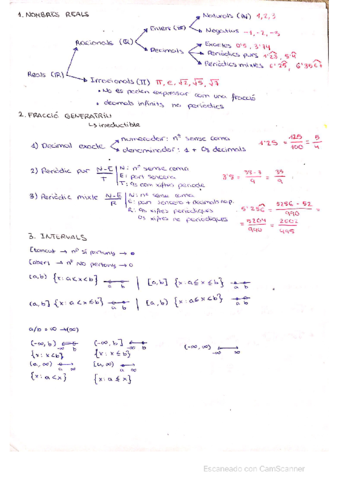 1. NOMBRES REALS
Naturals (N) 1, 2, 3
Enters (Z)
Negatius -1, -2, -3
Racionals (Q)
Exactes 0'5, 3'14
Decimals
Periòdics purs
Periòdics mixtes
Reals (R)
Irracionals (I) π, e, √2, √5, √3
• No es poden expressar com una fracció
• decimals infinits no periòdics
2. FRACCIÓ GENERATRIU
↳ irreductible
numerador: nº sense coma
1) Decimal exacte
denominador: 1 + 0s decimals
1'25 = 125/100 = 5/4
2) Periòdic pur N-E/T
N: nº sense coma
E: part sencera
T: 9s com xifres període
3) Periòdic mixte N-E/R
N: nº sense coma
E: part sencera + decimals no p.
R: 9s xifres periòdiques
0s xifres no periòdiques
5'256 = 5256 - 52/990 =
= 5204/990 = 2602/495
3. INTERVALS
[tancat → nº SÍ pertany → •
(obert → nº NO pertany → o
(a, b) {x: a<x<b} a b | [a, b] {x: a≤x≤b} a b
(a, b] {x: a<x≤b} a b | [a, b) {x: a≤x<b} a b
(-∞, b) -∞ b (-∞, b] -∞ b (-∞, ∞) -∞ ∞
{x: x<b} {x: x≤b}
(a, ∞) a ∞ [a, ∞) a ∞
{x: a<x} {x: a≤x}
Escaneado con CamScanner